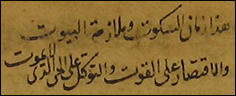 هذا زمان السكوت وملازمة البيوت
والاقتصار على القوت والتوكل على الحي الذي لا يموت